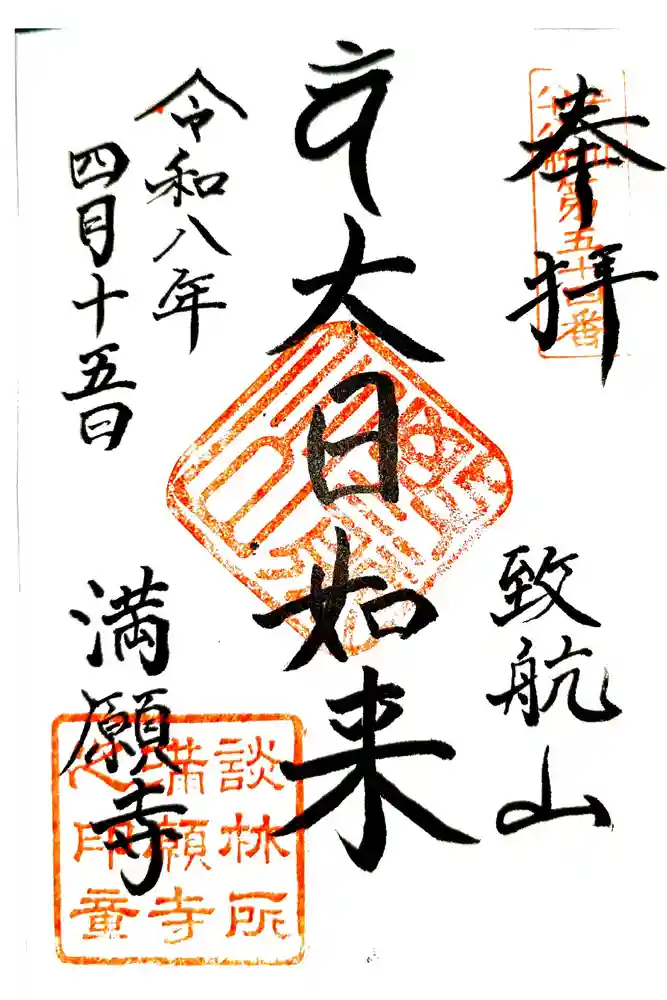 奉拝
第五十四番
致航山
大日如来
令和八年
四月十五日
満願寺
談林所
満願寺
之印章